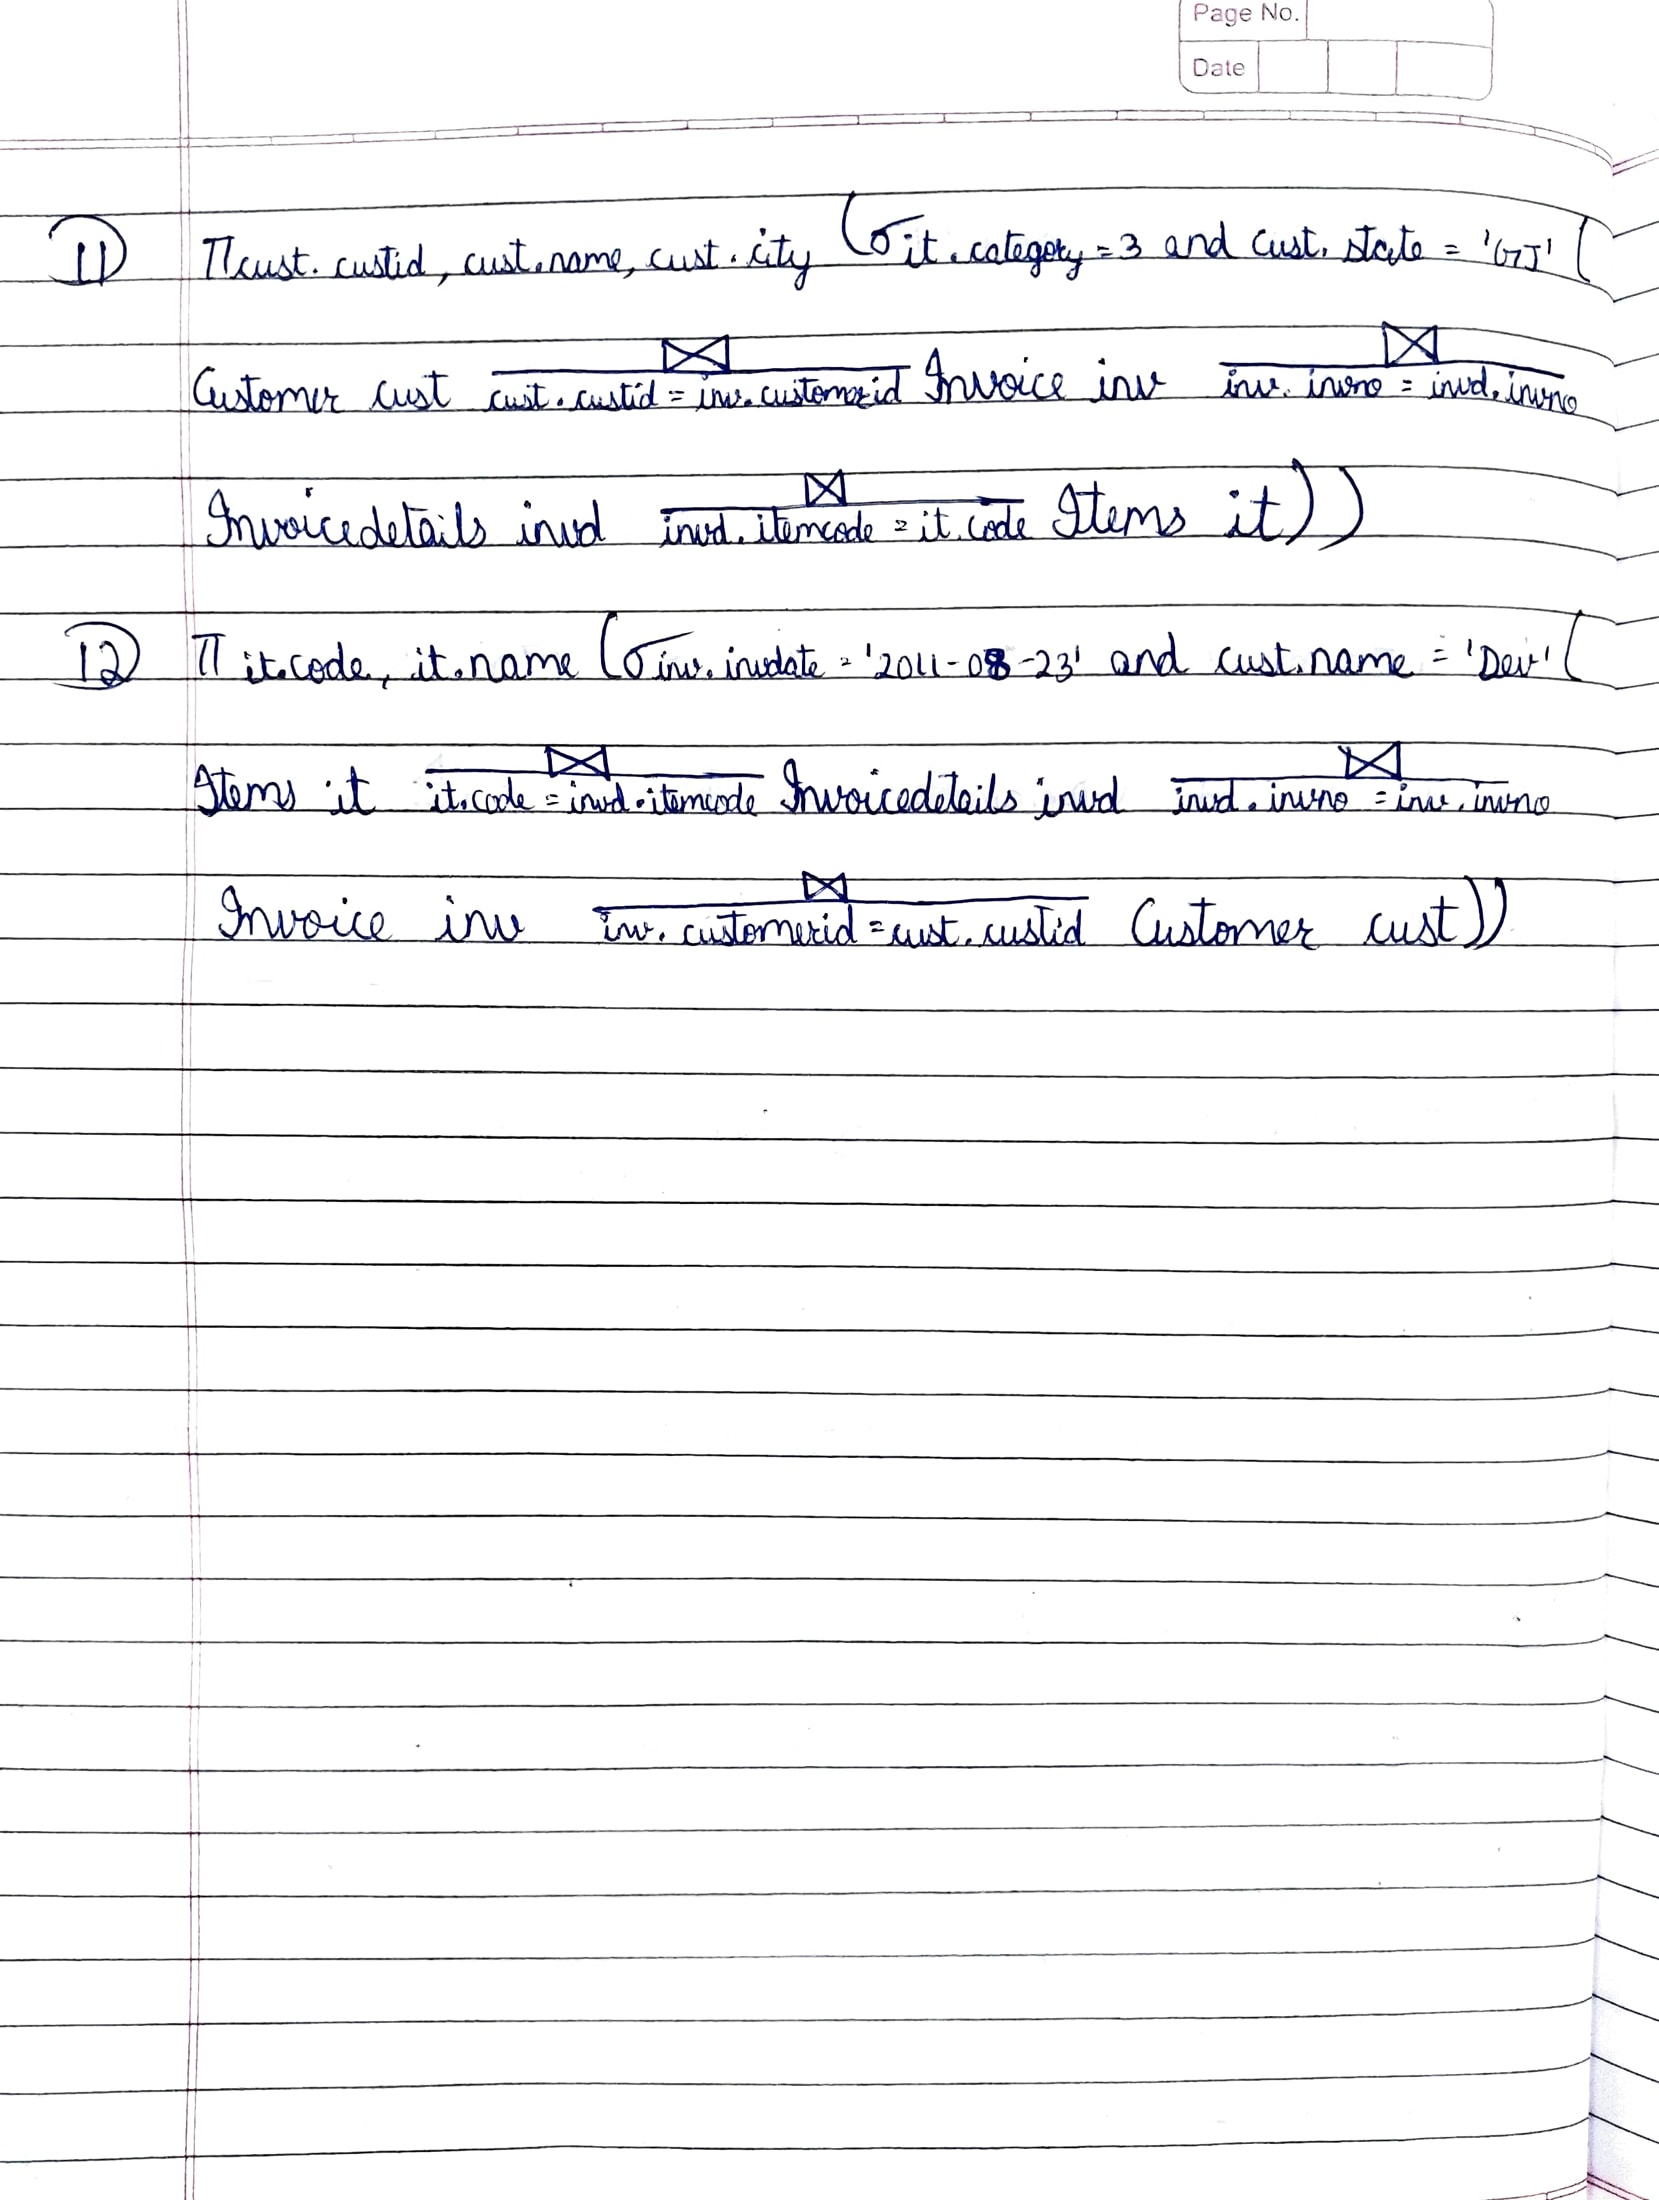 Page No.
Date
11 π cust.custid, cust.name, cust.city (σ it.category = 3 and cust.state = 'GJ' (
Customer cust ⋈ cust.custid = inv.customerid Invoice inv ⋈ inv.invno = invd.invno
Invoicedetails invd ⋈ invd.itemcode = it.code Items it))
12 π it.code, it.name (σ inv.invdate = '2011-08-23' and cust.name = 'Dev' (
Items it ⋈ it.code = invd.itemcode Invoicedetails invd ⋈ invd.invno = inv.invno
Invoice inv ⋈ inv.customerid = cust.custid Customer cust))